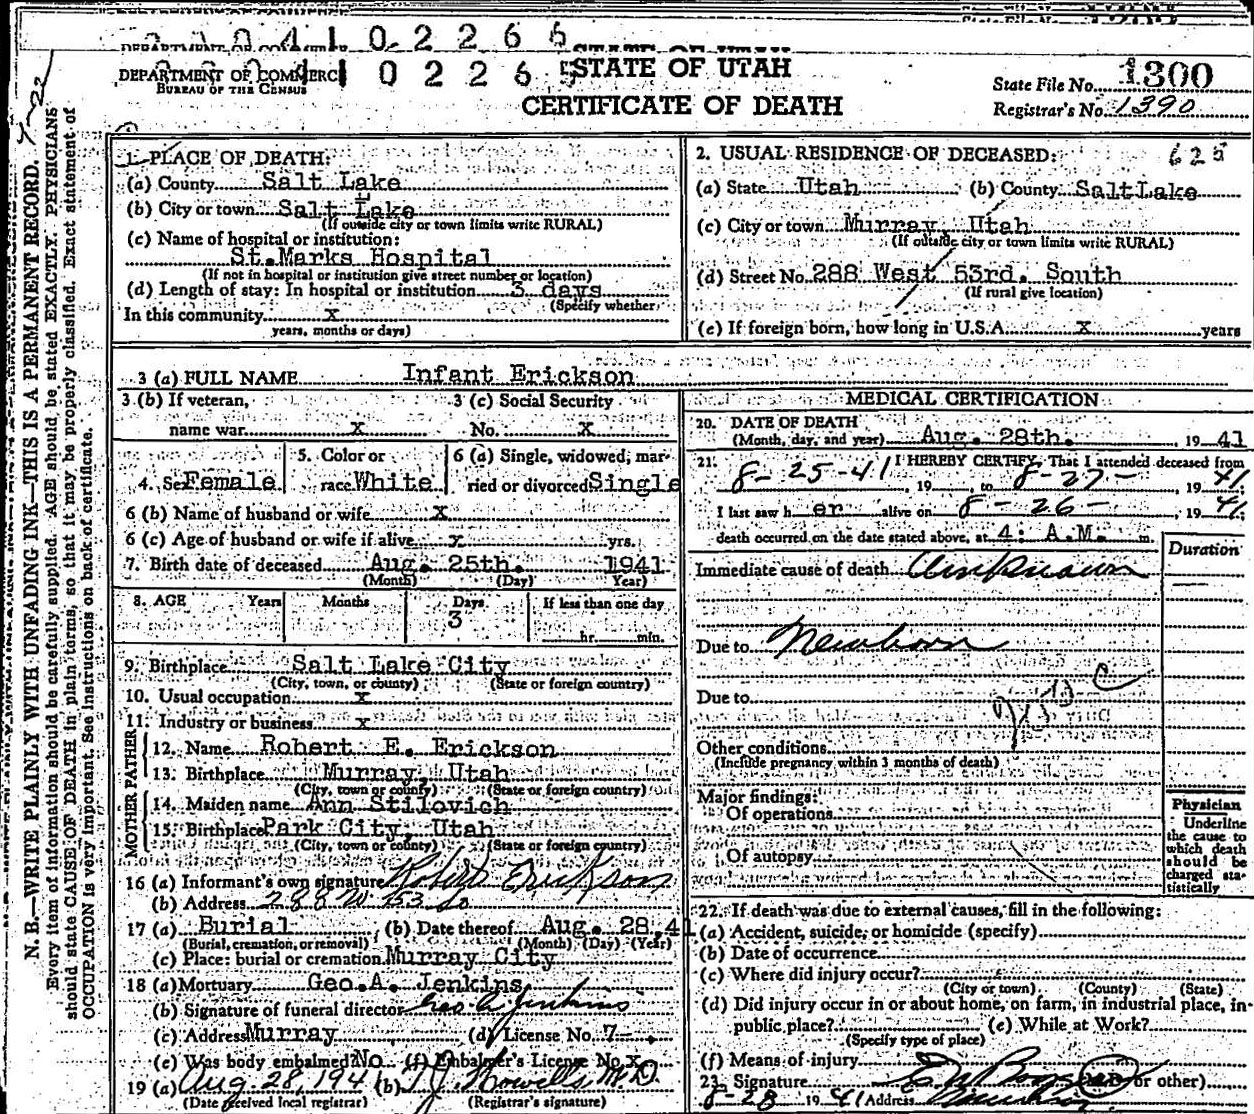 DEPARTMENT OF COMMERCE
BUREAU OF THE CENSUS
4 1 0 2 2 6 5
STATE OF UTAH
CERTIFICATE OF DEATH
State File No. 1300
Registrar's No. 1390
N. B.—WRITE PLAINLY WITH UNFADING INK—THIS IS A PERMANENT RECORD.
Every item of information should be carefully supplied. AGE should be stated EXACTLY. PHYSICIANS
should state CAUSE OF DEATH in plain terms, so that it may be properly classified. Exact statement of
OCCUPATION is very important. See instructions on back of certificate.
1. PLACE OF DEATH:
(a) County Salt Lake
(b) City or town Salt Lake
(If outside city or town limits write RURAL)
(c) Name of hospital or institution:
St.Marks Hospital
(If not in hospital or institution give street number or location)
(d) Length of stay: In hospital or institution 3 days
(Specify whether
In this community x
years, months or days)
2. USUAL RESIDENCE OF DECEASED: 625
(a) State Utah (b) County SaltLake
(c) City or town Murray, Utah
(If outside city or town limits write RURAL)
(d) Street No. 288 West 53rd. South
(If rural give location)
(e) If foreign born, how long in U.S.A. x years
3 (a) FULL NAME Infant Erickson
3 (b) If veteran, 3 (c) Social Security
name war X No. X
4. Sex Female 5. Color or race White 6 (a) Single, widowed, married or divorced Single
6 (b) Name of husband or wife X
6 (c) Age of husband or wife if alive x yrs.
7. Birth date of deceased Aug. 25th. 1941
(Month) (Day) Year)
8. AGE Years Months Days If less than one day
3
hr. min.
9. Birthplace Salt Lake City
(City, town, or county) (State or foreign country)
10. Usual occupation x
11. Industry or business x
FATHER
12. Name Robert E. Erickson
13. Birthplace Murray, Utah
(City, town or county) (State or foreign country)
MOTHER
14. Maiden name Ann Stilovich
15. Birthplace Park City, Utah
(City, town or county) (State or foreign country)
16 (a) Informant's own signature Robert Erickson
(b) Address 288 W. 53 So
17 (a) Burial (b) Date thereof Aug. 28, 41
(Burial, cremation, or removal) (Month) (Day) (Year)
(c) Place: burial or cremation Murray City
18 (a) Mortuary Geo.A. Jenkins
(b) Signature of funeral director Geo A Jenkins
(c) Address Murray (d) License No. 7
(e) Was body embalmed? No (f) Embalmer's License No. X
19 (a) Aug 28, 194 (b) M.D.
(Date received local registrar) (Registrar's signature)
MEDICAL CERTIFICATION
20. DATE OF DEATH
(Month, day, and year) Aug. 28th. , 19 41
21. I HEREBY CERTIFY, That I attended deceased from
8-25-41 , 19 , to 8-27- , 19 41
I last saw h er alive on 8-26- , 19 41
death occurred on the date stated above, at 4: A.M. m.
Duration
Immediate cause of death Unknown
Due to Newborn
Due to
Other conditions
(Include pregnancy within 3 months of death)
Major findings:
Of operations
Of autopsy
Physician
Underline
the cause to
which death
should be
charged sta-
tistically
22. If death was due to external causes, fill in the following:
(a) Accident, suicide, or homicide (specify)
(b) Date of occurrence
(c) Where did injury occur?
(City or town) (County) (State)
(d) Did injury occur in or about home, on farm, in industrial place, in
public place? (e) While at Work?
(Specify type of place)
(f) Means of injury
23. Signature (M.D. or other)
8-28 19 41 Address